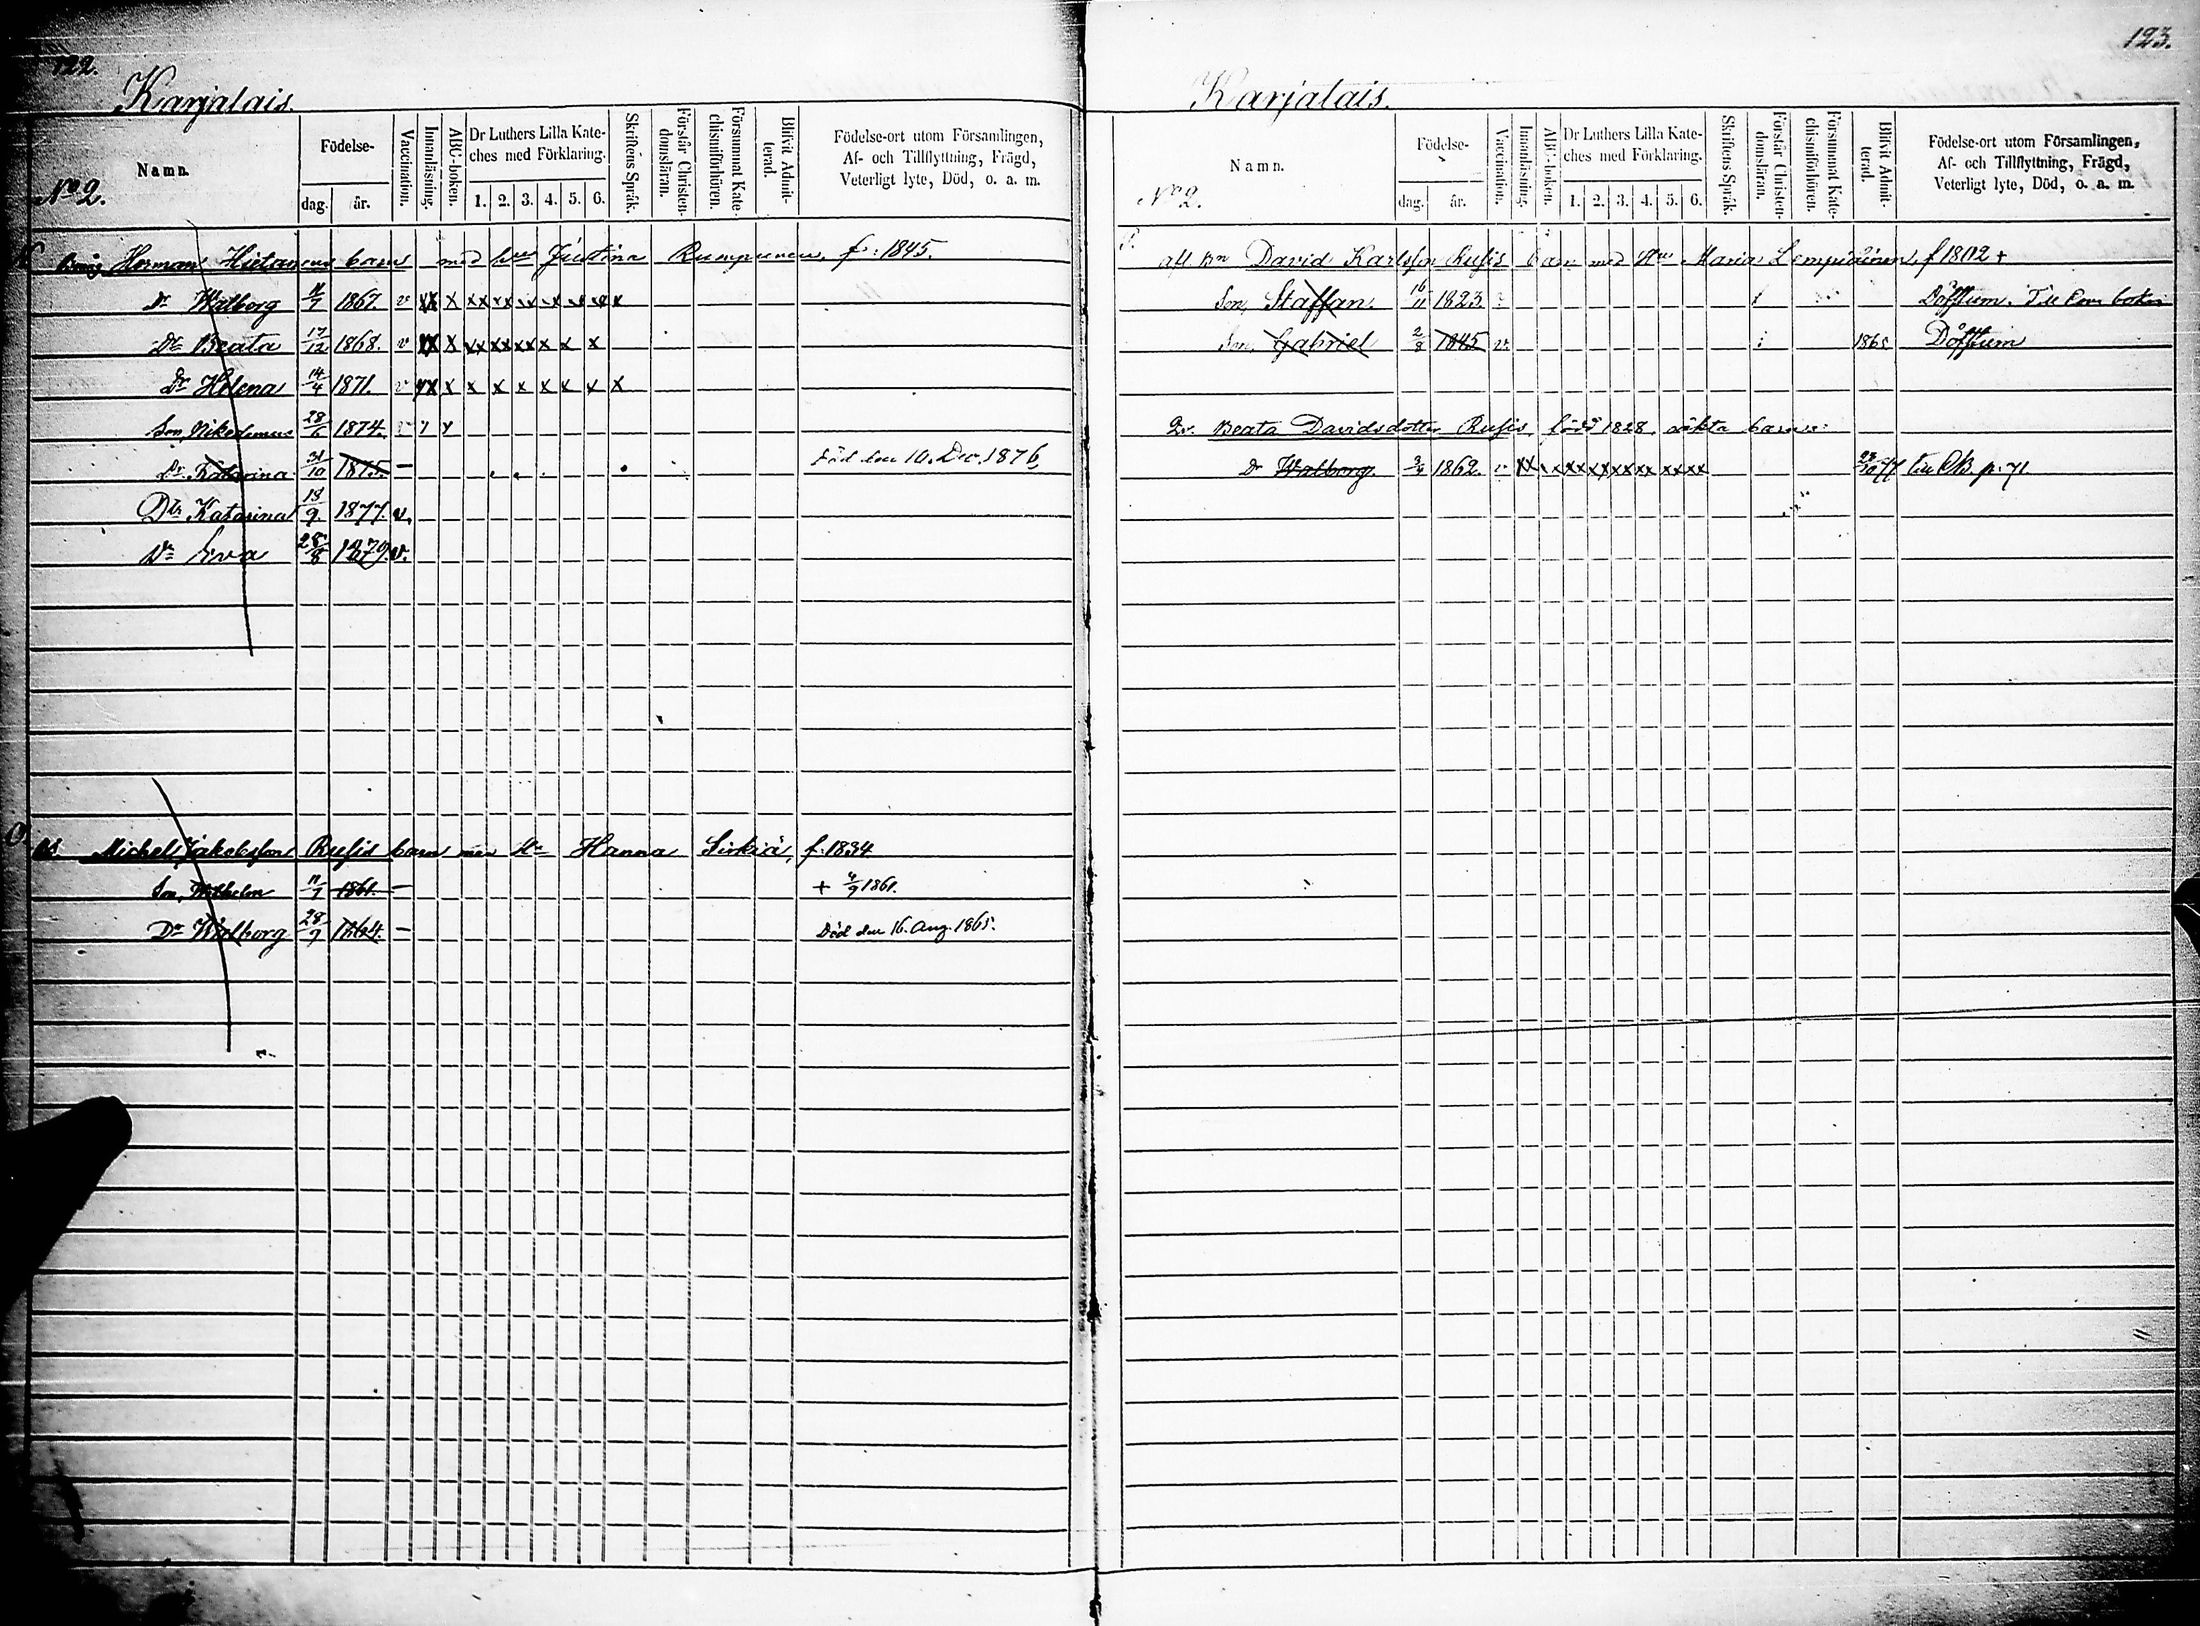 122.
Karjalais.
Namn.
No 2.
Födelse-
dag.
år.
Vaccination.
Innanläsning.
ABC-boken.
Dr Luthers Lilla Kate-
ches med Förklaring.
1. 2. 3. 4. 5. 6.
Skriftens Språk.
Förstår Christen-
domsläran.
Försummat Kate-
chismiförhören.
Blifvit Admit-
terad.
Födelse-ort utom Församlingen,
Af- och Tillflyttning, Frägd,
Veterligt lyte, Död, o. a. m.
Herman Hietanens barn med hu Justina Rumpunen f: 1845.
Dr Walborg 11/7 1867. v xx x xx xx xx x x xx x
Dr Beata 17/12 1868. v xx x xx xx xx x x x
Dr Helena 14/4 1871. v xx x x x x x x x x
Son, Nikodemus 28/6 1874. v x x
Dr Katarina 31/10 1875. — Död den 10. Dec. 1876
Dtr Katarina 13/9. 1877. v.
Dr Eva 28/8 1879. v.
Michel Jakobsson Rusis barn med Hu Hanna Sirkiä, f: 1834
Son, Wilhelm 11/7 1861. — + 4/9 1861.
Dr Walborg 28/7 1864. — Död den 16. Aug. 1865.
123.
Karjalais.
Namn.
No 2.
Födelse-
dag.
år.
Vaccination.
Innanläsning.
ABC-boken.
Dr Luthers Lilla Kate-
ches med Förklaring.
1. 2. 3. 4. 5. 6.
Skriftens Språk.
Förstår Christen-
domsläran.
Försummat Kate-
chismiförhören.
Blifvit Admit-
terad.
Födelse-ort utom Församlingen,
Af- och Tillflyttning, Frägd,
Veterligt lyte, Död, o. a. m.
afl. Bn David Karlsson Rusis barn med Hu Maria Lempiäinen, f 1802 +
Son, Staffan 16/11 1823. Döfstum.
Son, Gabriel 2/8 1845 v. 1865 Döfstum
Beata Davidsdotter Rusis, född 1828, oäkta barn:
Dr Walborg. 3/4 1862. v xx x xx xx xx xx xx xx 77 till CB p. 71